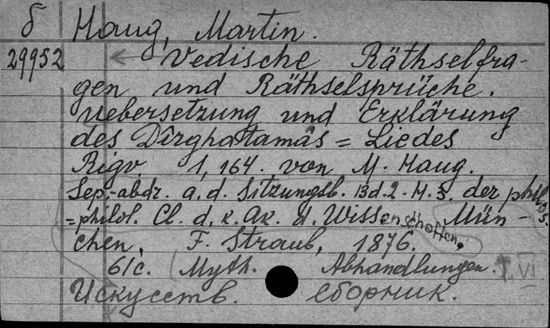 б Haug, Martin.
29952 ← Vedische Räthselfra-
gen und Räthselsprüche.
Uebersetzung und Erklärung
des Dîrghatamâs = Liedes
Rigv. 1, 164. von M. Haug.
Sep.-abdr. a. d. Sitzungsb. Bd. 2. H. 3. der phil.
= philol. Cl. d. k. Ak. d. Wissenschaften. Mün-
chen, F. Straub, 1876.
61c. Myth. Abhandlungen. T. VI
Искусств. Сборник.